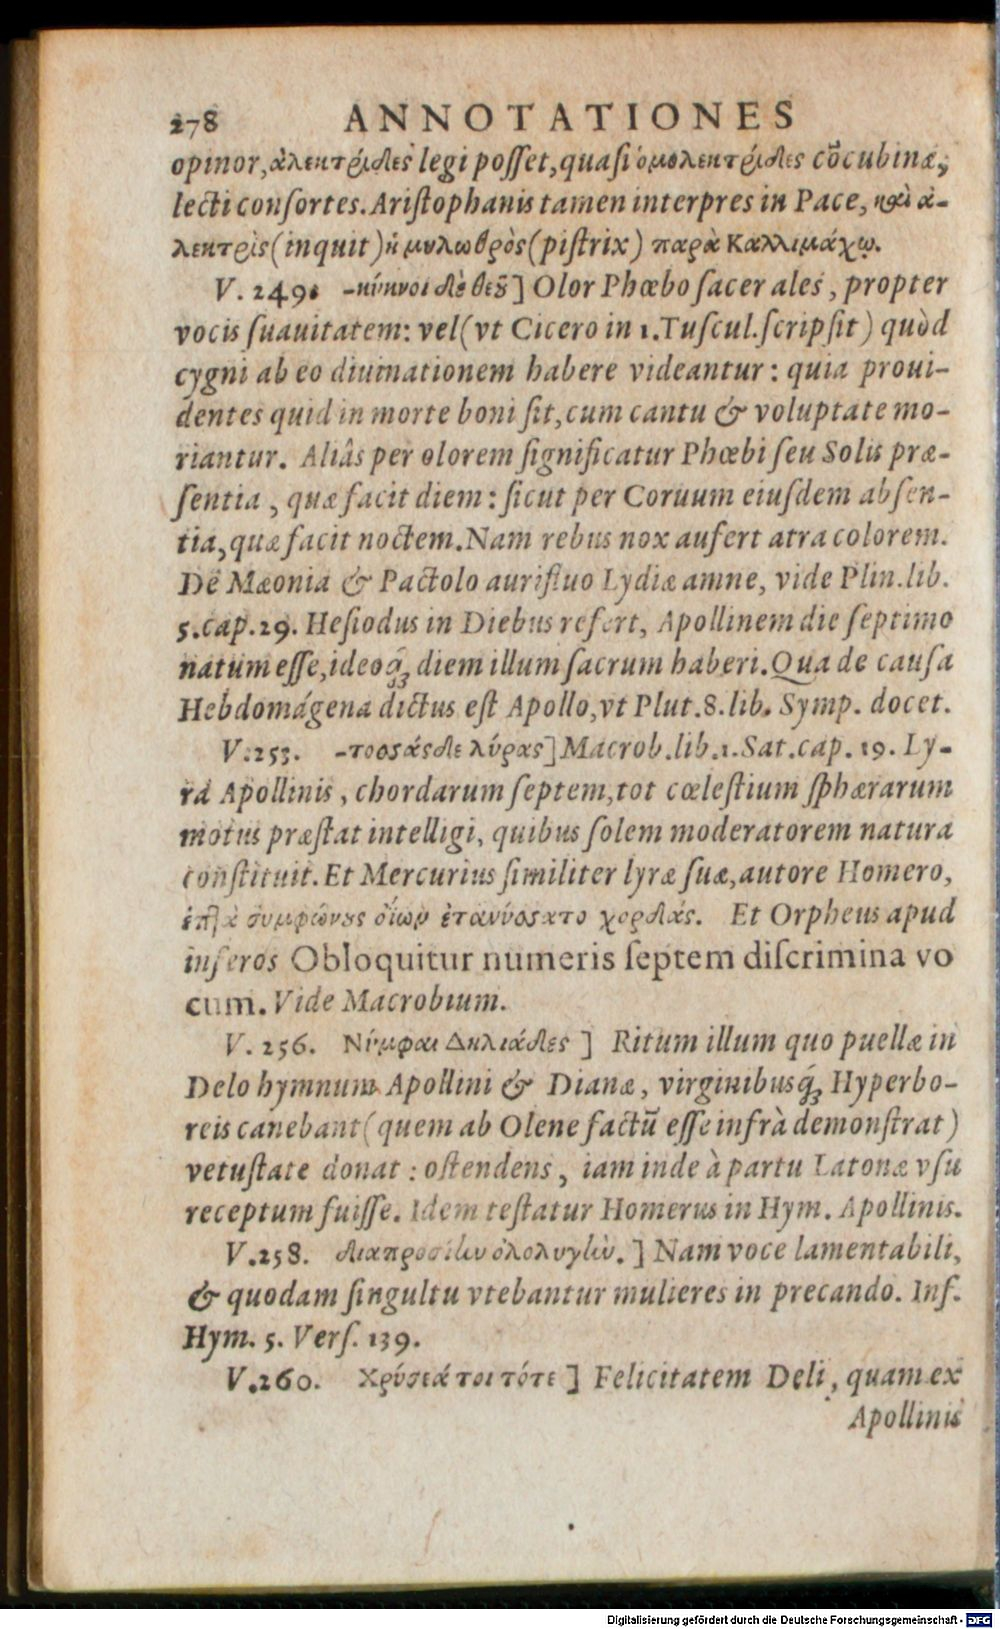 278 ANNOTATIONES
opinor, ἀλεκτρίδες legi poſſet, quaſi ὁμολεκτρίδες cõcubinæ,
lecti conſortes. Ariſtophanis tamen interpres in Pace, καὶ ἀ-
λεκτρὶς (inquit) ἡ μυλωθρὸς (piſtrix) παρὰ Καλλιμάχῳ.
V. 249. -κύκνοι δὲ θεοῦ] Olor Phœbo ſacer ales, propter
vocis ſuauitatem: vel (vt Cicero in 1. Tuſcul. ſcripſit) quòd
cygni ab eo diuinationem habere videantur: quia proui-
dentes quid in morte boni ſit, cum cantu & voluptate mo-
riantur. Aliâs per olorem ſignificatur Phœbi ſeu Solis præ-
ſentia, quæ facit diem: ſicut per Coruum eiuſdem abſen-
tia, quæ facit noctem. Nam rebus nox aufert atra colorem.
De Mæonia & Pactolo aurifluo Lydiæ amne, vide Plin. lib.
5. cap. 29. Heſiodus in Diebus refert, Apollinem die ſeptimo
natum eſſe, ideoq́ꝫ diem illum ſacrum haberi. Qua de cauſa
Hebdomágena dictus eſt Apollo, vt Plut. 8. lib. Symp. docet.
V. 253. -τοσσάσδε λύρας] Macrob. lib. 1. Sat. cap. 19. Ly-
ra Apollinis, chordarum ſeptem, tot cœleſtium ſphærarum
motus præſtat intelligi, quibus ſolem moderatorem natura
conſtituit. Et Mercurius ſimiliter lyræ ſuæ, autore Homero,
ἑπτὰ συμφώνους ὀΐων ἐτανύσσατο χορδάς. Et Orpheus apud
inferos Obloquitur numeris ſeptem diſcrimina vo
cum. Vide Macrobium.
V. 256. Νύμφαι Δηλιάδες] Ritum illum quo puellæ in
Delo hymnum Apollini & Dianæ, virginibusq́ꝫ Hyperbo-
reis canebant (quem ab Olene factũ eſſe infrà demonſtrat)
vetuſtate donat: oſtendens, iam inde à partu Latonæ vſu
receptum fuiſſe. Idem teſtatur Homerus in Hym. Apollinis.
V. 258. διαπρυσίην ὀλολυγήν.] Nam voce lamentabili,
& quodam ſingultu vtebantur mulieres in precando. Inf.
Hym. 5. Verſ. 139.
V. 260. Χρύσεά τοι τότε] Felicitatem Deli, quam ex
Apollinis
Digitalisierung gefördert durch die Deutsche Forschungsgemeinschaft - DFG